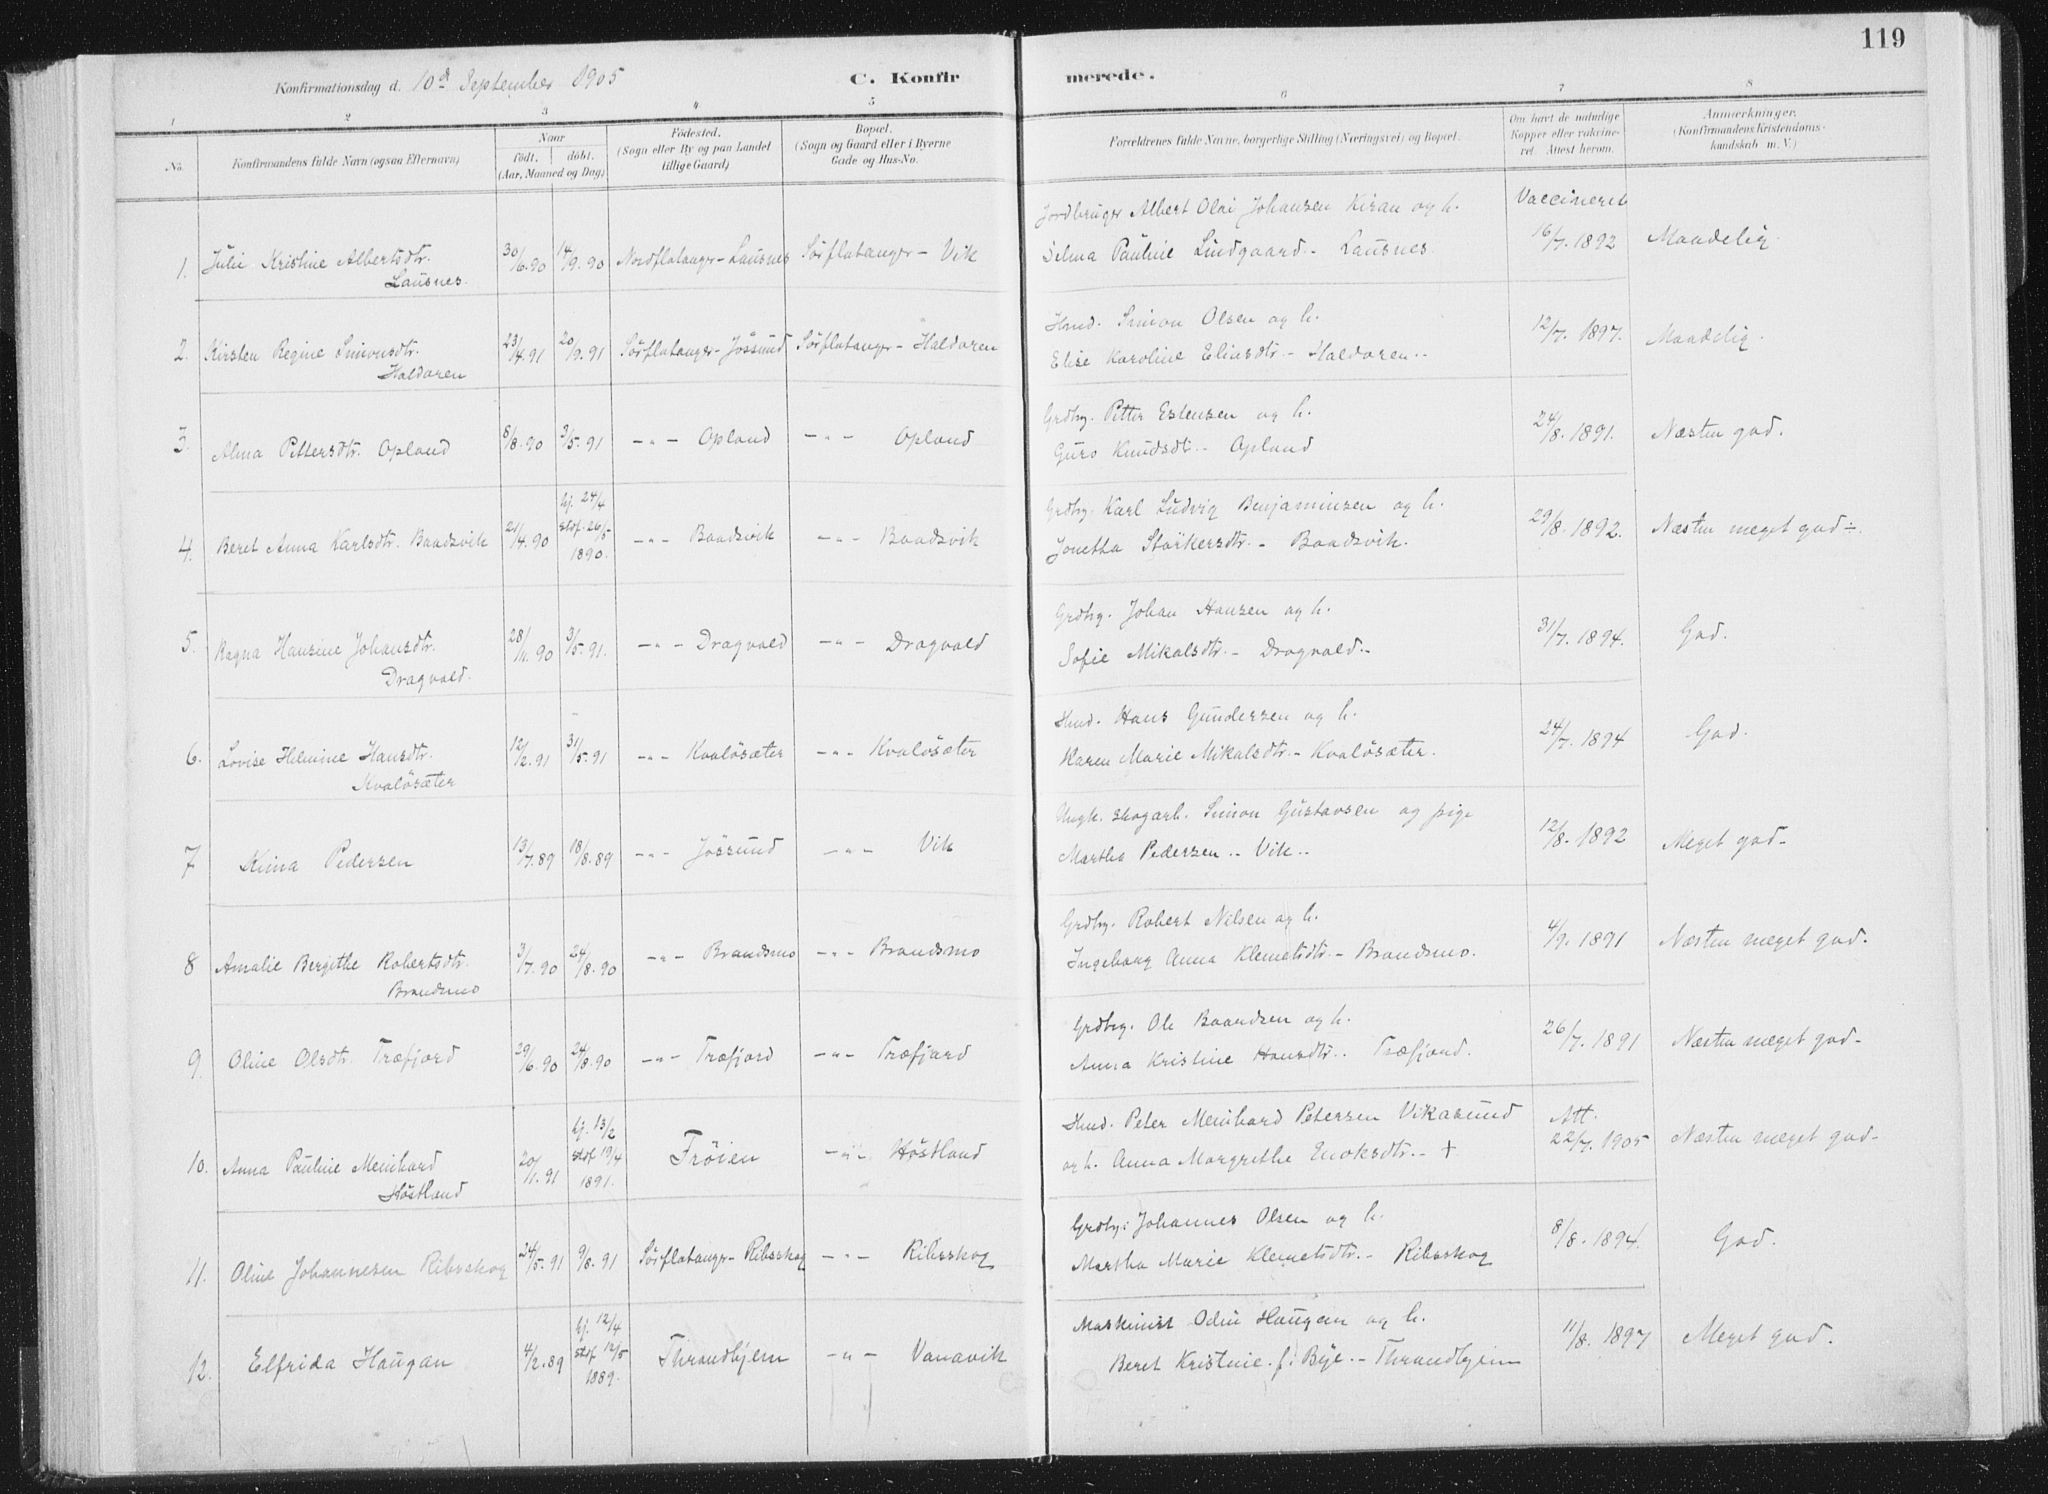 119
Konfirmationsdag d. 10de September 1905
C. Konfirmerede.
1 2 3 4 5 6 7 8
No.
Konfirmandens fulde Navn (ogsaa Efternavn)
Naar
født. døbt.
(Aar, Maaned og Dag)
Fødested.
(Sogn eller By og paa Landet
tillige Gaard)
Bopæl.
(Sogn og Gaard eller i Byerne
Gade og Hus-No.
Forældrenes fulde Navne, borgerlige Stilling (Næringsvei) og Bopæl.
Om havt de naturlige
Kopper eller vakcine-
ret. Attest herom.
Anmærkninger.
(Konfirmandens Kristendoms-
kundskab m. V.)
Jordbruger Albert Olai Johansen Kiran og h. Vaccineret
1. Julie Kristine Albertsdtr. 30/6.90 14/9.90 Nordflatanger - Lausnes Sørflatanger - Vik Selma Pauline Lindgaard - Lausnes 16/7.1892 Maadelig.
Lausnes.
Hmd. Simon Olsen og h.
2. Kirsten Regine Simonsdtr. 23/4.91 20/9.91 Sørflatanger - Jøssund Sørflatanger - Haldoren Elise Karoline Eliasdtr. - Haldoren.. 12/7.1897. Maadelig.
Haldoren
Grdbg. Petter Estensen og h.
3. Alma Pettersdtr. Opland 8/8.90 3/5.91 -"- Opland -"- Opland Guro Knudsdt.. Opland 24/8.1891. Næsten god.
Grdbg. Karl Ludvig Benjaminsen og h.
4. Beret Anna Karlsdtr. Baadsvik 21/4.90 hj. 24/4 stdf. 26/5 1890. -"- Baadsvik -"- Baadsvik Jonetha Starkersdtr. - Baadsvik. 29/8.1892. Næsten meget god ÷.
Grdbg. Johan Hansen og h.
5. Ragna Hansine Johansdtr. 28/11.90 3/5.91. -"- Dragvold -"- Dragvold Sofie Mikalsdtr. - Dragvold.- 31/7.1894. God.
Dragvold.
Hmd. Hans Gundersen og h.
6. Lovise Helmine Hansdtr. 12/2.91 31/5.91 -"- Kvaløsæter -"- Kvaløsæter Karen Marie Mikalsdtr. - Kvaløsæter. 24/7.1894 God.
Kvaløsæter
Ungk. skogarb. Simon Gustavsen og pige
7 Kima Pedersen 13/7.89 18/8.89 -"- Jøssund -"- Vik Martha Pedersen .. Vik.. 12/8.1892 Meget god-
Grdbg. Robert Nilsen og h.
8 Amalie Bergithe Robertsdtr. 3/7.90 24/8.90 -"- Brandsmo -"- Brandsmo Ingeborg Anna Klemetsdtr. - Brandsmo. 4/9.1891 Næsten meget god.
Brandsmo
Grdbg. Ole Baardsen og h.
9. Oline Olsdtr. Træfjord 29/6.90 24/8.90 -"- Træfjord -"- Træfjord Anna Kristine Hansdtr.. Træfjord. 26/7.1891 Næsten meget god-
Hmd. Peter Meinhard Petersen Vikasund Att.
10. Anna Pauline Meinhard 20/1.91 hj. 13/2 stdf 19/4 1891. Frøien -"- Høstland og h. Anna Margrethe Enoksdtr. - + 22/7.1905 Næsten meget god-
Høstland
Grdbg. Johannes Olsen og h.
11. Oline Johannesen Ribsskog 24/5.91 9/8.91 Sørflatanger - Ribsskog -"- Ribsskog Martha Marie Klemetsdtr. - Ribsskog 8/8.1894. God.
Maskinist Odin Haugan og h.
12. Elfrida Haugan 4/2.89 hj. 12/4 stdf 12/5 1889. Throndhjem -"- Vanavik Beret Kristine f. Bye. - Throndhjem 11/8.1897 Meget god.